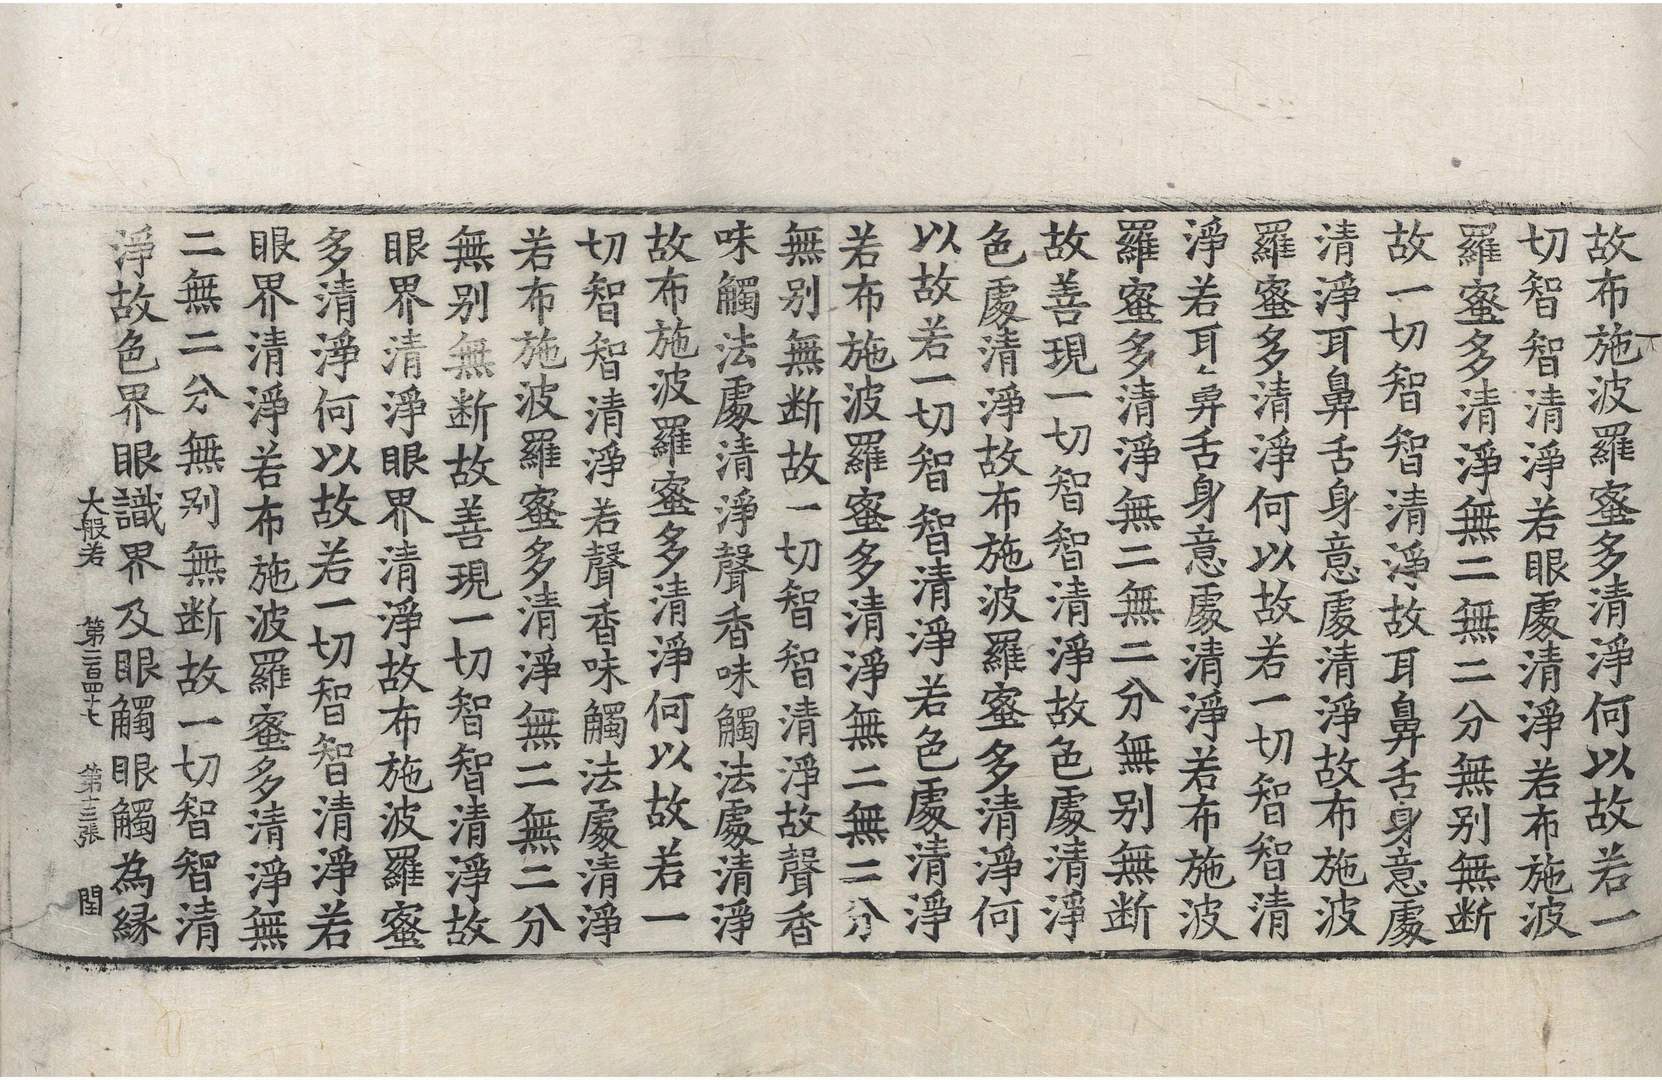 故布施波羅蜜多清淨何以故若一
切智智清淨若眼處清淨若布施波
羅蜜多清淨無二無二分無别無断
故一切智智清淨故耳鼻舌身意處
清淨耳鼻舌身意處清淨故布施波
羅蜜多清淨何以故若一切智智清
淨若耳鼻舌身意處清淨若布施波
羅蜜多清淨無二無二分無别無断
故善現一切智智清淨故色處清淨
色處清淨故布施波羅蜜多清淨何
以故若一切智智清淨若色處清淨
若布施波羅蜜多清淨無二無二分
無别無断故一切智智清淨故聲香
味觸法處清淨聲香味觸法處清淨
故布施波羅蜜多清淨何以故若一
切智智清淨若聲香味觸法處清淨
若布施波羅蜜多清淨無二無二分
無别無断故善現一切智智清淨故
眼界清淨眼界清淨故布施波羅蜜
多清淨何以故若一切智智清淨若
眼界清淨若布施波羅蜜多清淨無
二無二分無别無断故一切智智清
淨故色界眼識界及眼觸眼觸為縁
大般若 第二百四十七 第十三張 閏